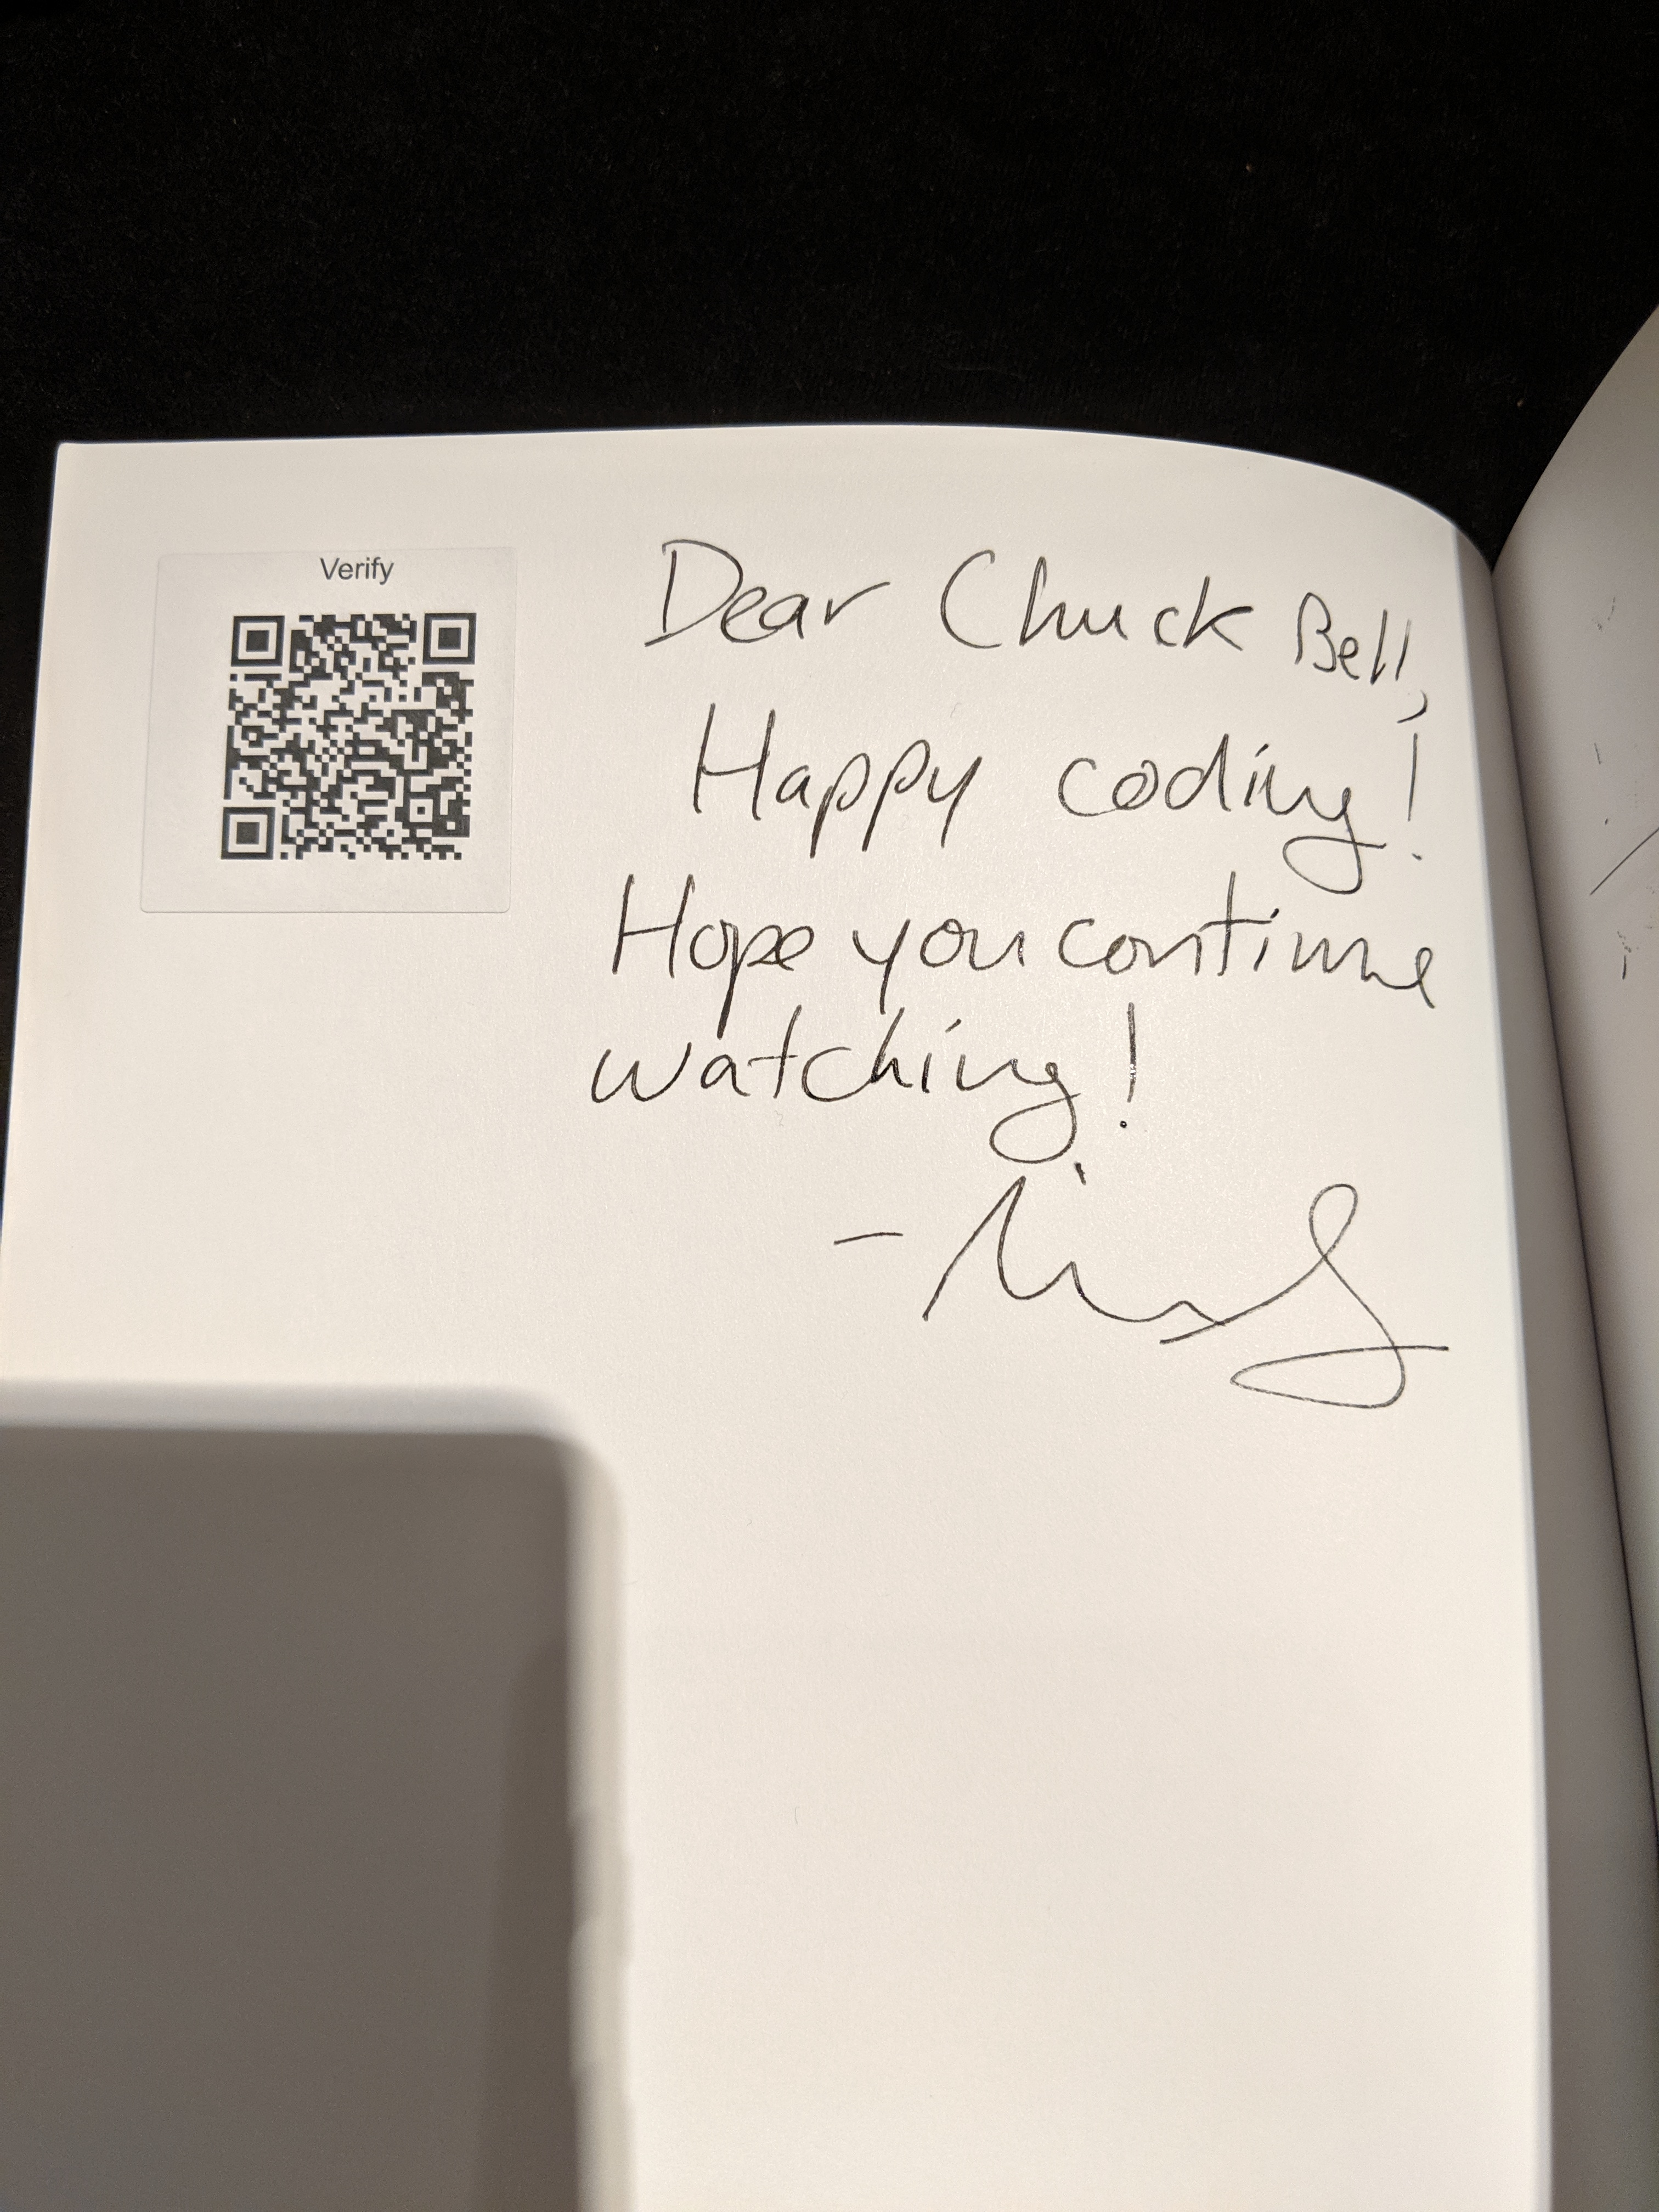 Verify
Dear Chuck Bell,
Happy coding!
Hope you continue
watching!